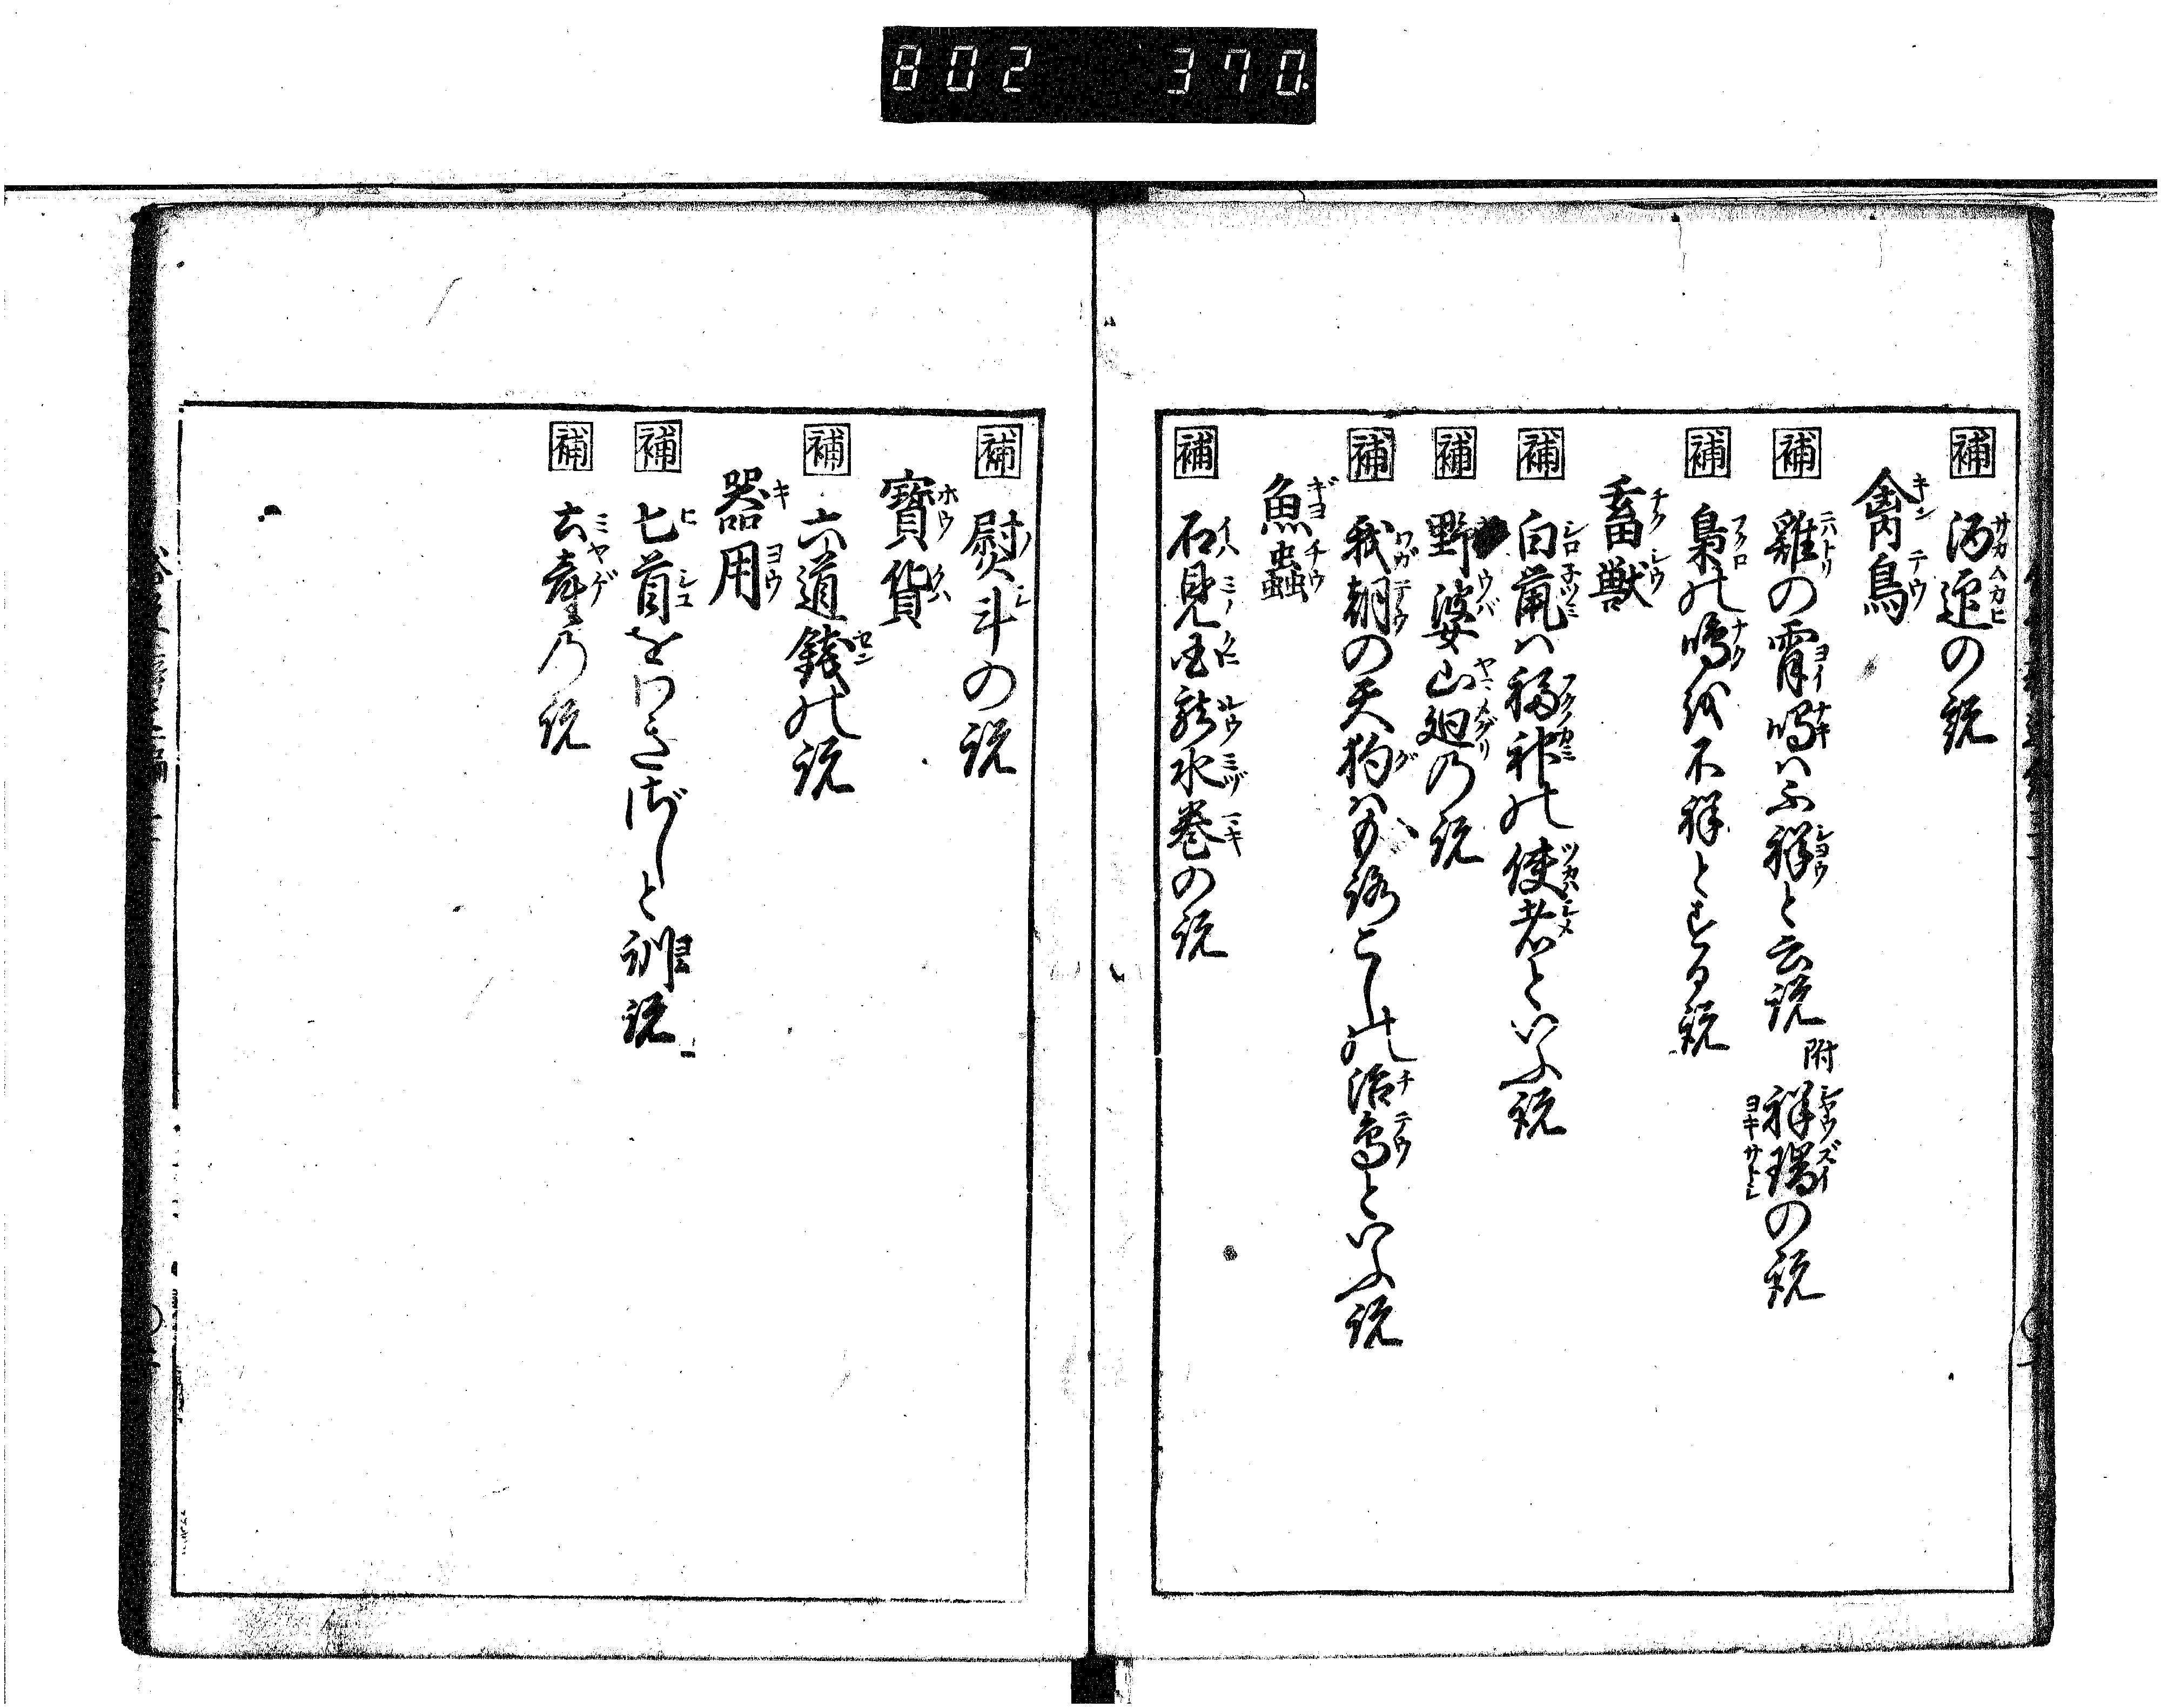 802 370
補 酒迎の説
禽鳥
補 雞の宵鳴ハ不祥と云説 附 祥瑞の説
補 梟の鳴を不祥とする説
畜獣
補 白鼠ハ福神の使者といふ説
補 野婆山廻の説
補 我朝の天狗ハもろこしの治鳥といふ説
魚蟲
補 石見国龍水巻の説
補 熨斗の説
寶貨
補 六道銭の説
器用
補 匕首をわきざしと訓説
補 土産の説